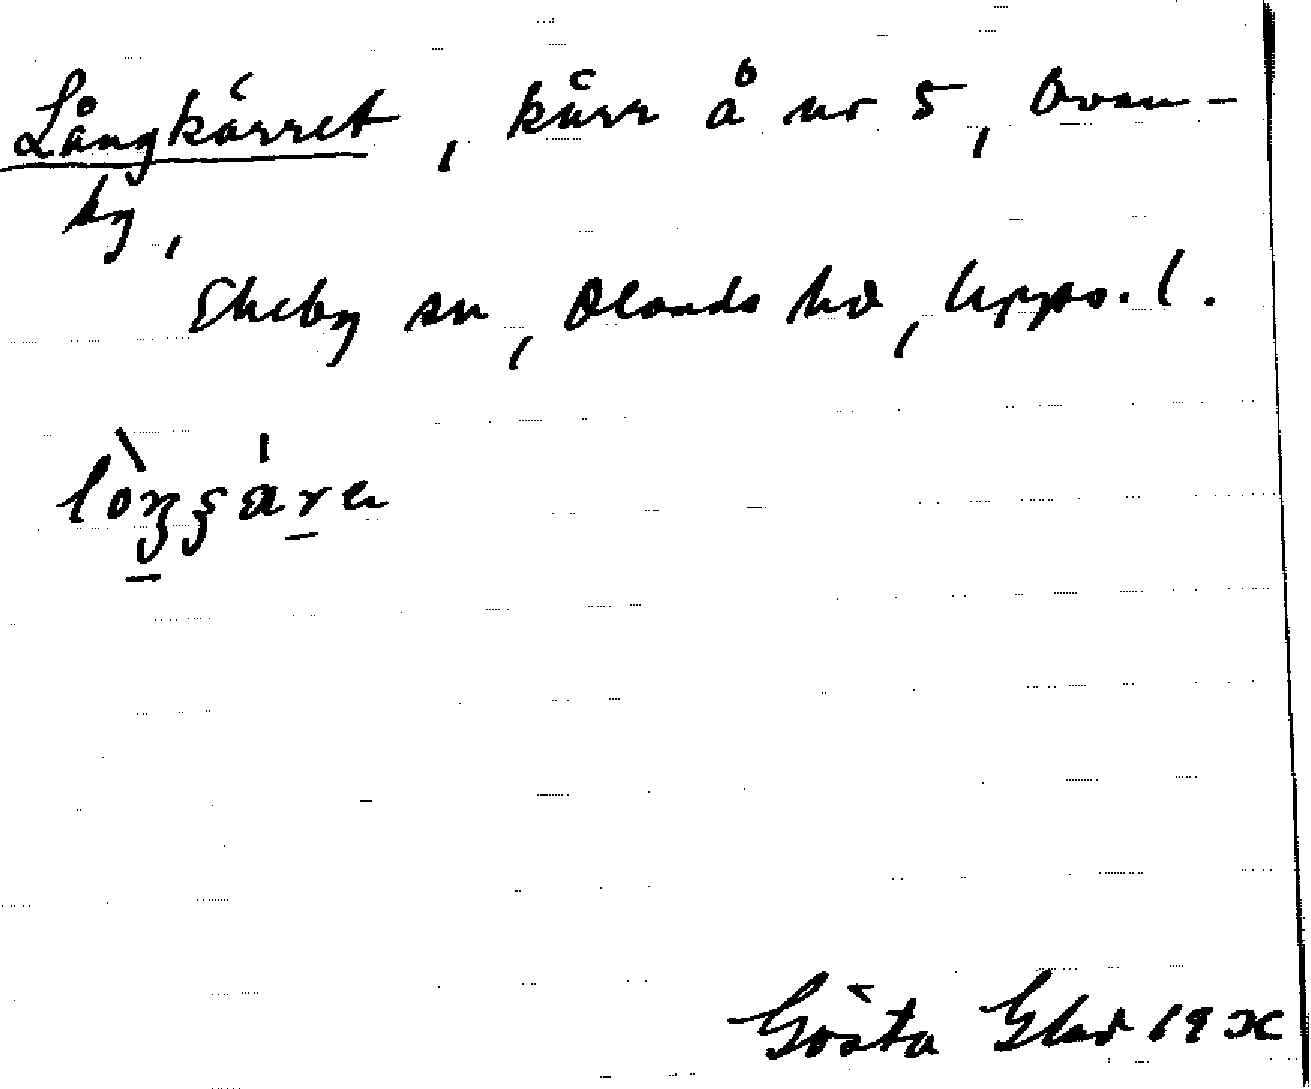 Långkärret, kärr å nr 5, Ovan-
by,
Ekeby sn, Olands hd, Upps. l.
Gösta Glad 19